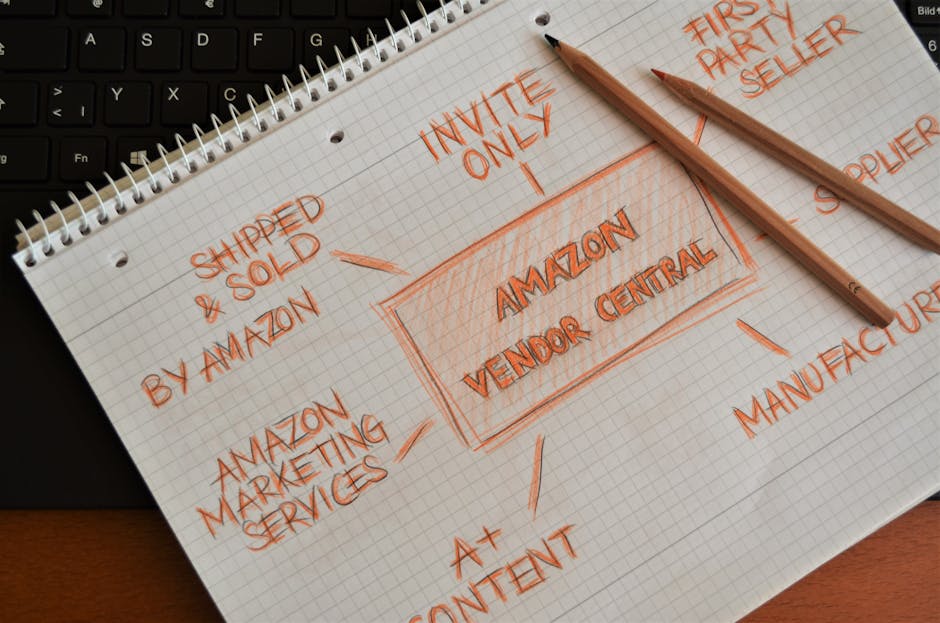 A S D F G H
> < | Y X C
Fn
€
Bild
6
FIRST
PARTY
SELLER
INVITE
ONLY
SUPPLIER
SHIPPED
& SOLD
BY AMAZON
AMAZON
VENDOR CENTRAL
MANUFACTURE
AMAZON
MARKETING
SERVICES
A+
CONTENT